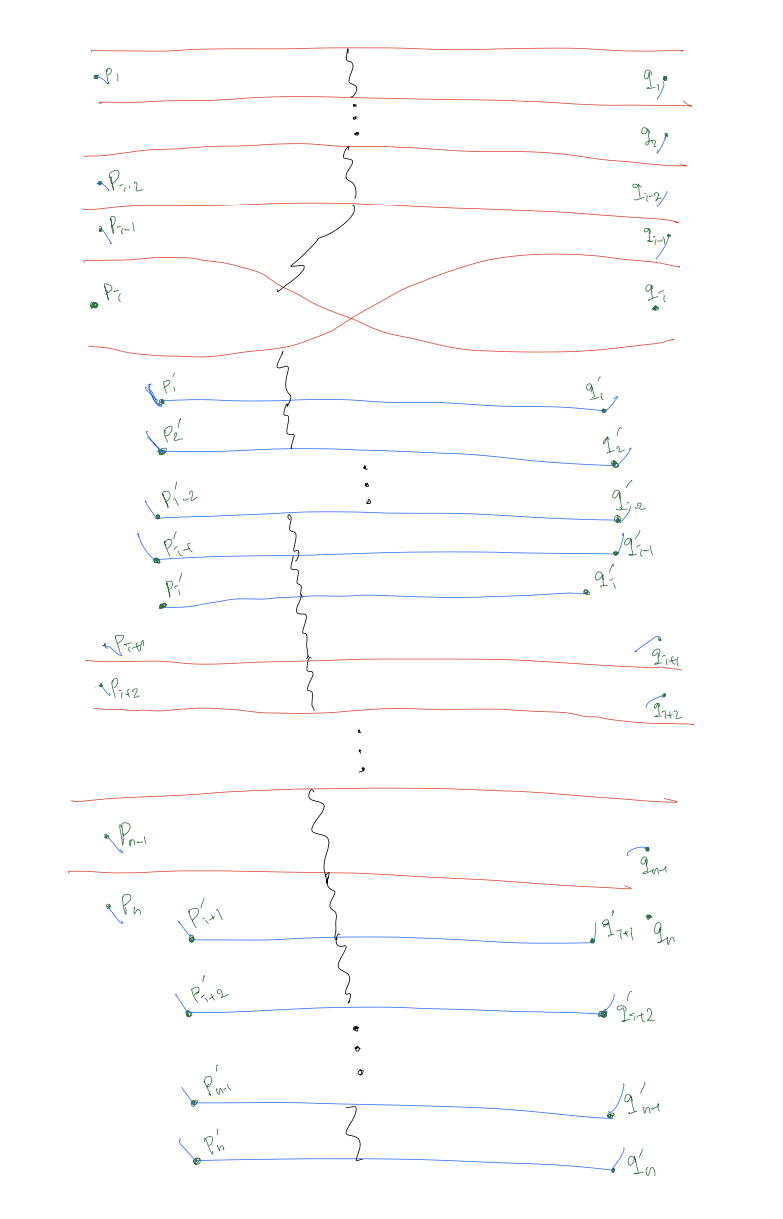 p₁ q₁
q₂
p_{i-2} q_{i-2}
p_{i-1} q_{i-1}
p_i q_i
p₁' q₁'
p₂' q₂'
p'_{i-2} q'_{i-2}
p'_{i-1} q'_{i-1}
p_i' q_i'
p_{i+1} q_{i+1}
p_{i+2} q_{i+2}
p_{n-1} q_{n-1}
p_n q_n
p'_{i+1} q'_{i+1}
p'_{i+2} q'_{i+2}
p'_{n-1} q'_{n-1}
p'_n q'_n